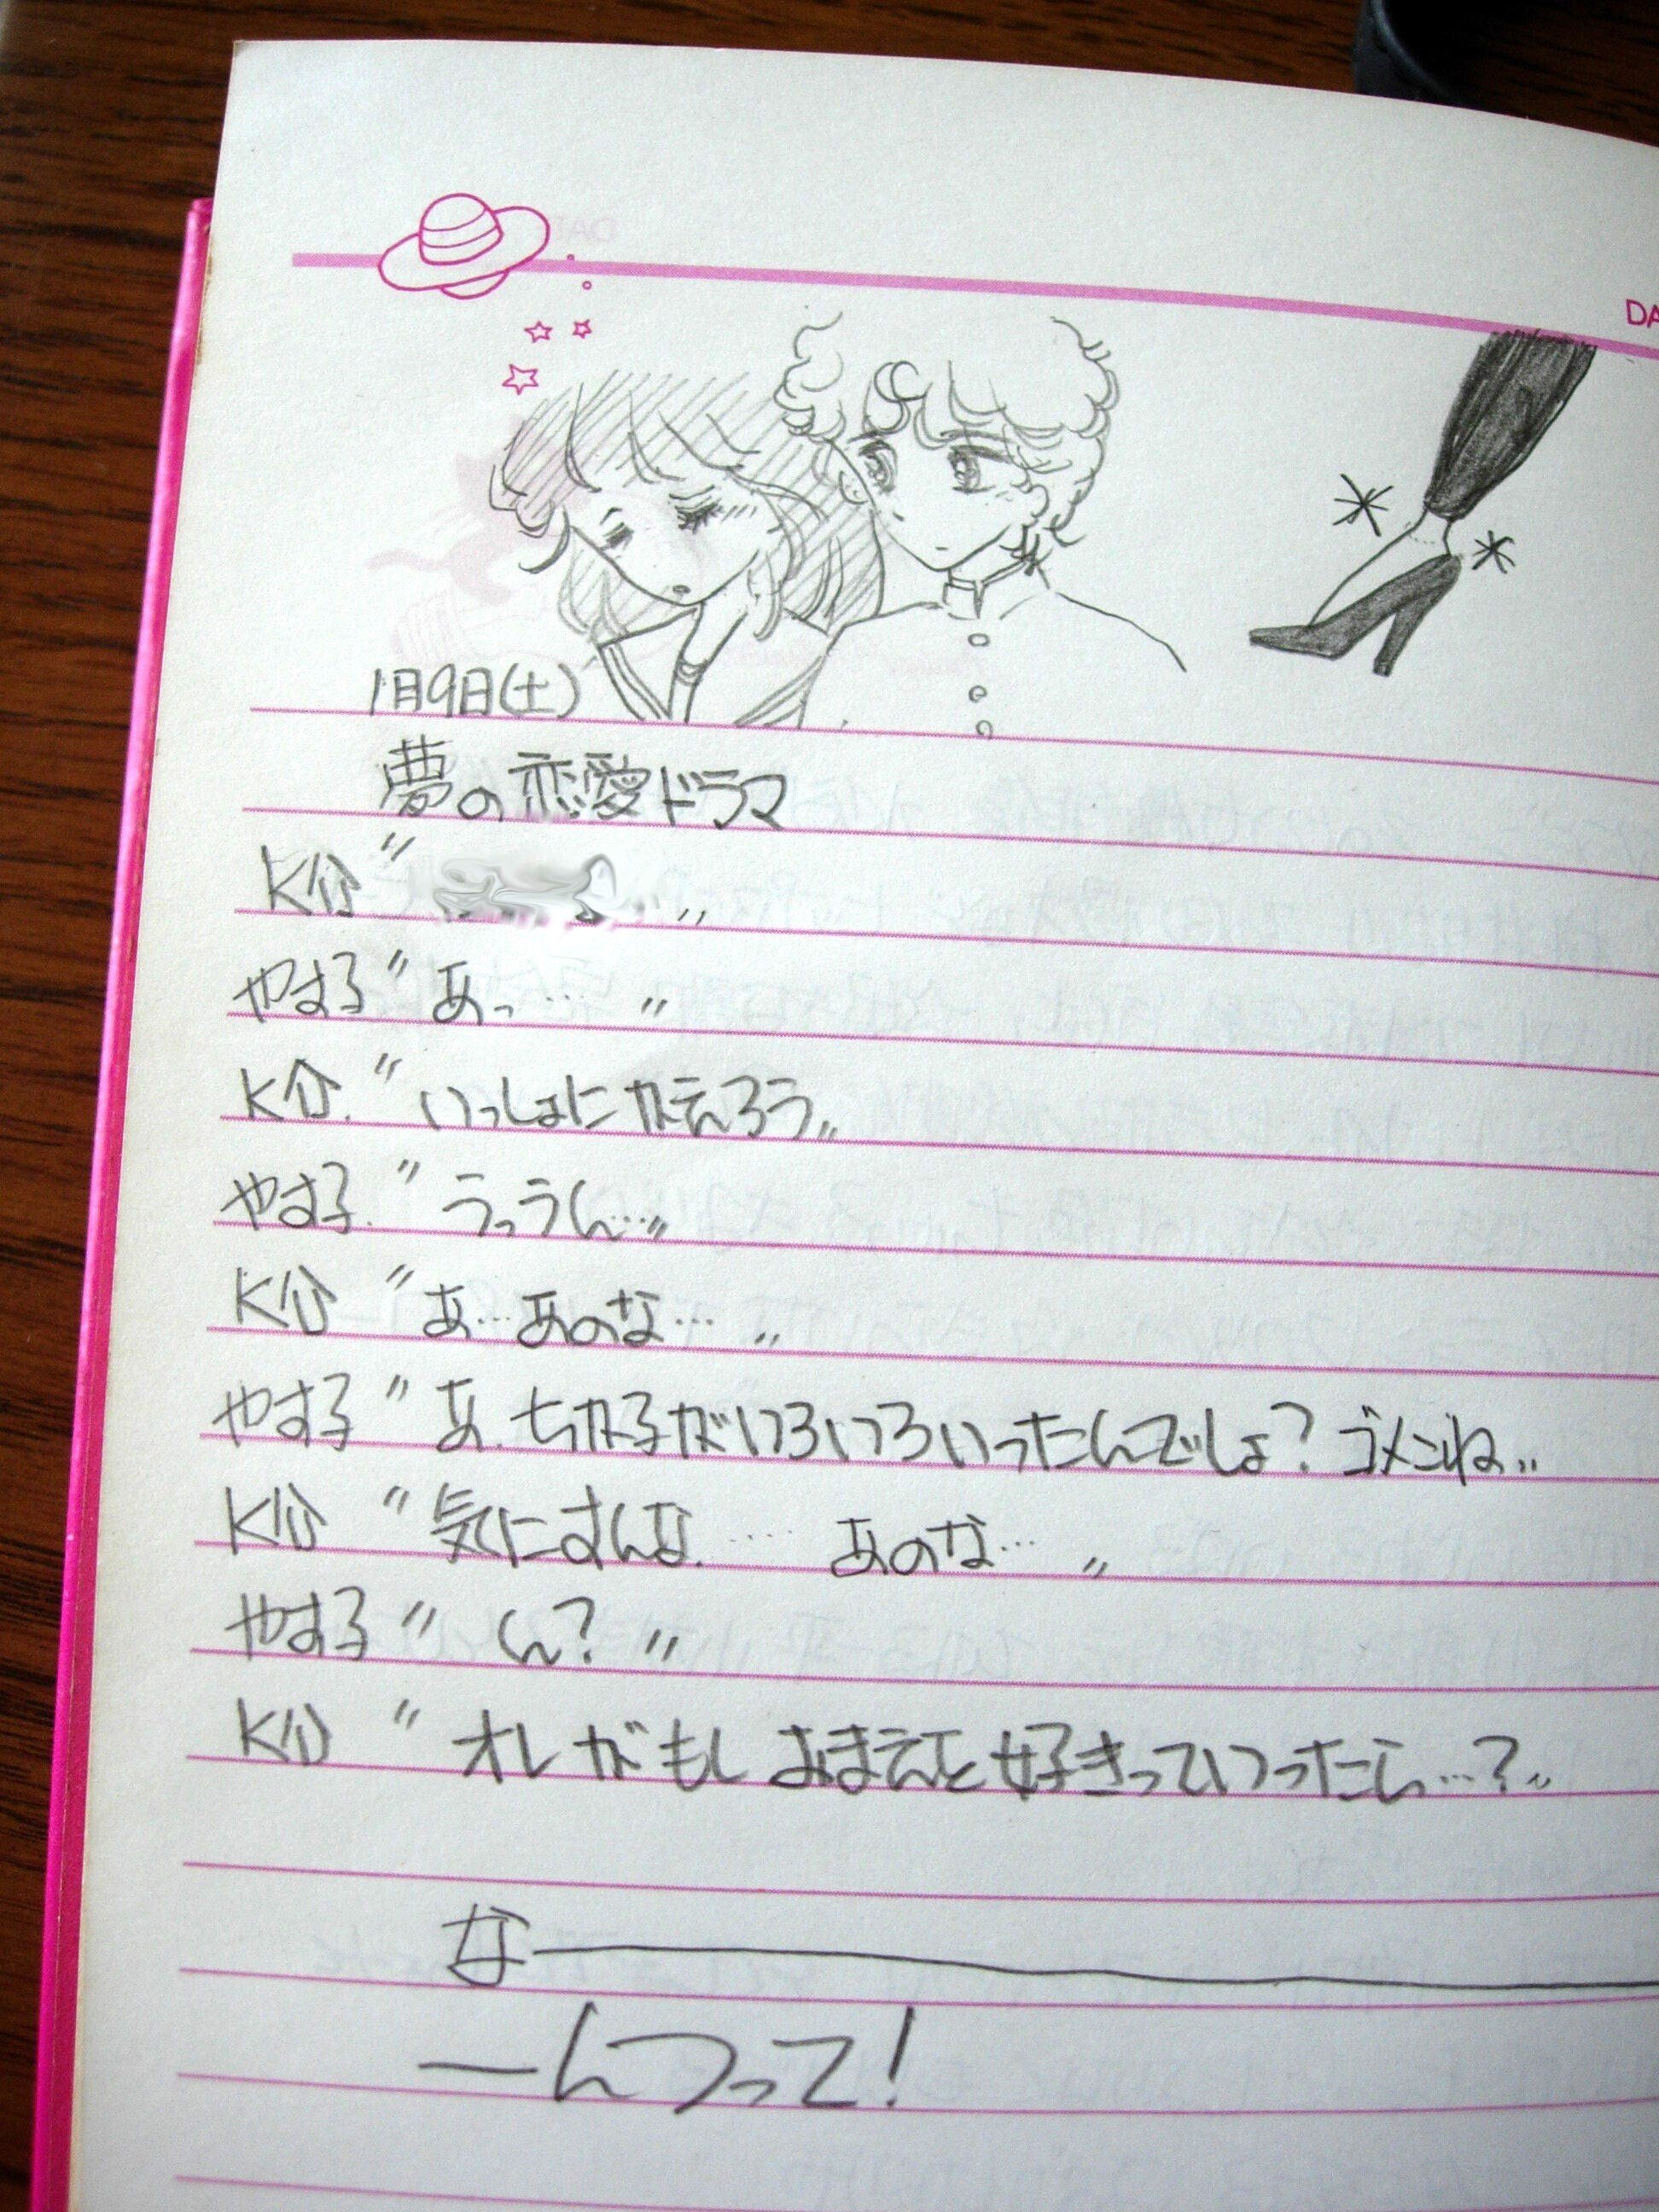 DA
1月9日(土)
夢の恋愛ドラマ
K公〝 〟
やす子〝あっ…… 〟
K公.〝いっしょにかえろう〟
やす子.〝うっうん…〟
K公〝あ…あのな… 〟
やす子〝あ、ちか子がいろいろいったんでしょ?ゴメンね〟
K公〝気にすんな.…… あのな… 〟
やす子〝ん?〟
K公〝オレがもしおまえんこと好きっていったら…?〟
な―――――
―んつって!